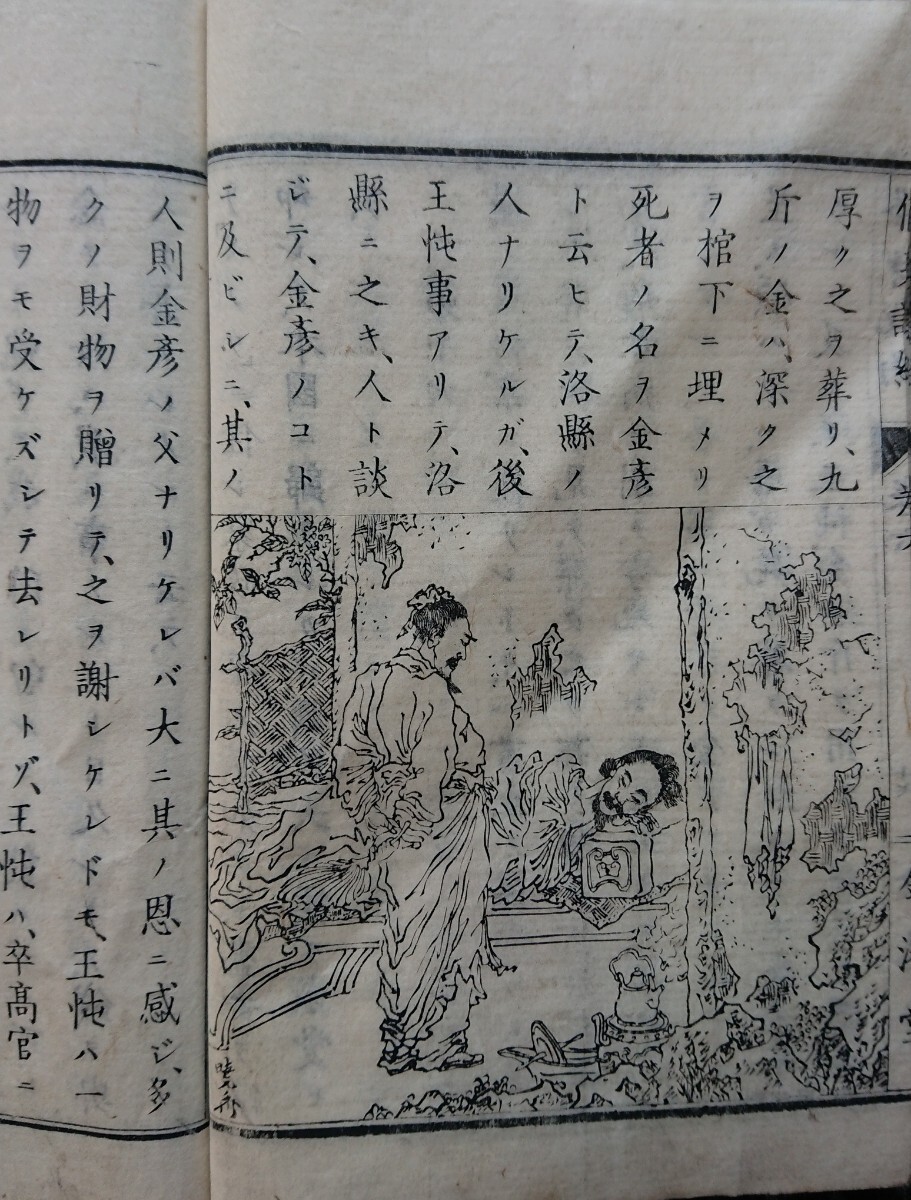 厚ク之ヲ葬リ、九
斤ノ金ハ、深ク之
ヲ棺下ニ埋メリ
死者ノ名ヲ金彥
ト云ヒテ、洛縣ノ
人ナリケルガ、後
王忳事アリテ、洛
縣ニ之キ、人ト談
ジテ、金彥ノコト
ニ及ビシニ、其ノ
人則金彥ノ父ナリケレバ大ニ其ノ恩ニ感ジ、多
クノ財物ヲ贈リテ、之ヲ謝シケレドモ、王忳ハ一
物ヲモ受ケズシテ去レリトゾ、王忳ハ、卒高官ニ